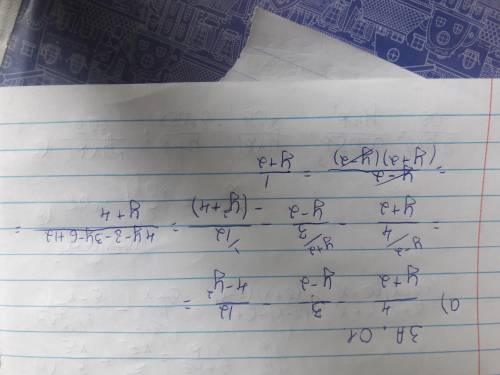 ЗА. 01
a) 4/(y+2) - 3/(y-2) - 12/(4-y²) =
= 4/(y+2) /y-2 - 3/(y-2) /y+2 - 12/-(y²+4) /1 = (4y-8-3y-6+12)/(y+4) =
= (y-2)/((y+2)(y-2)) = 1/(y+2)